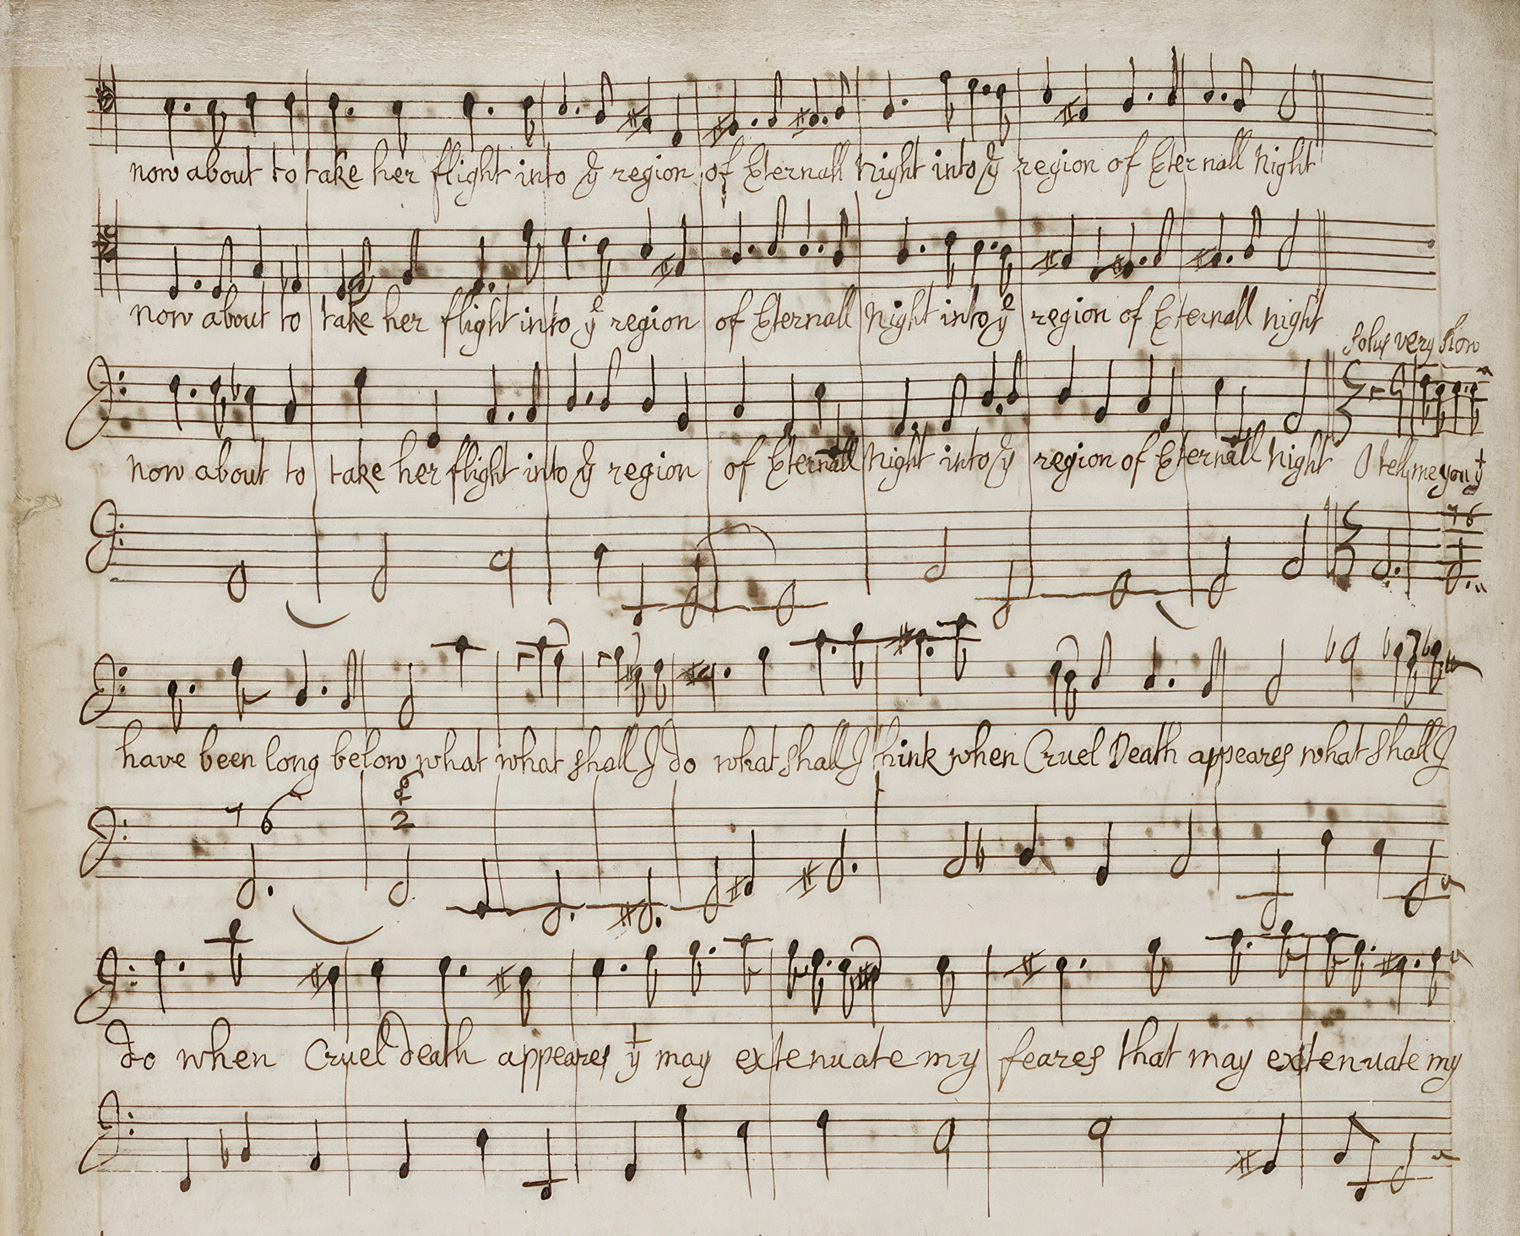 now about to take her flight into ye region of Eternall Night into ye region of Eternall Night
now about to take her flight into ye region of Eternall Night into ye region of Eternall night
Solus very slow
now about to take her flight into ye region of Eternall Night into ye region of Eternall Night O tell me you yt
7 6
have been long below what what shall I do what shall I think when Cruel Death appeares what shall I
7 6
2
do when Cruel death appeares yt may extenuate my feares that may extenuate my